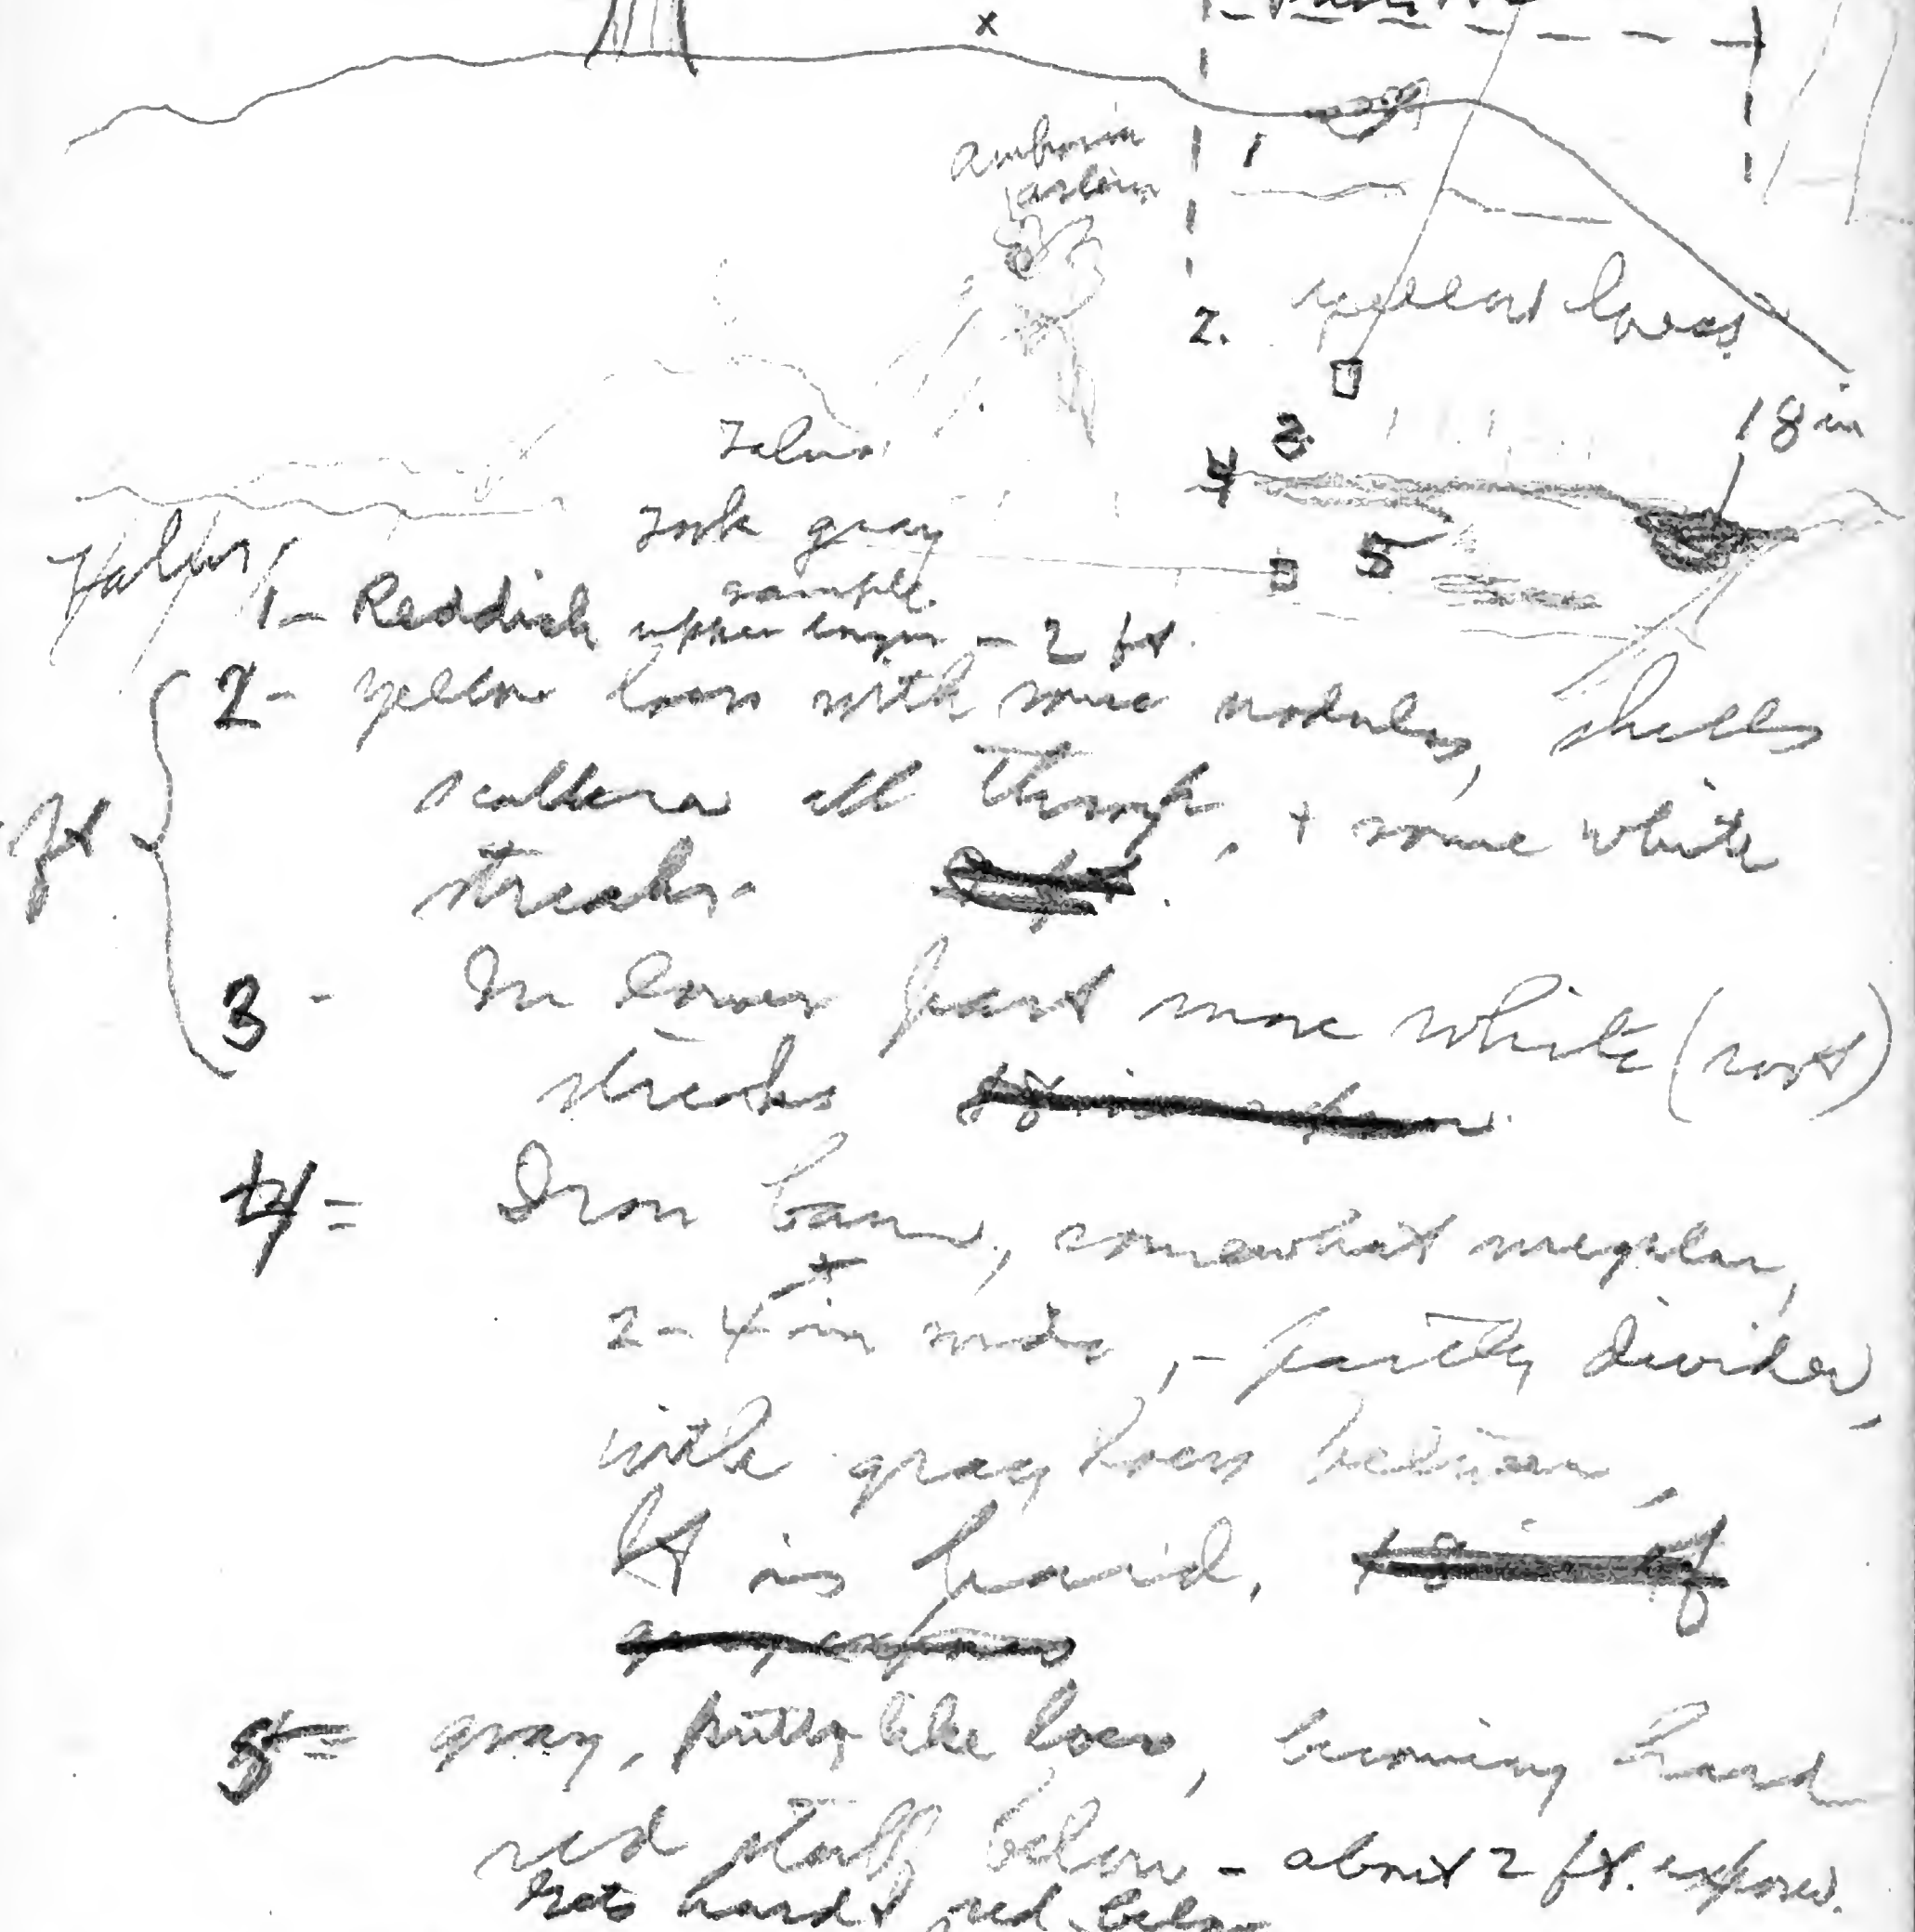 x
1
2. yellow loess
3.
18 in
4
Talus
5
Took gray
sample.
1 - Reddish upper layer - 2 ft.
2 - yellow loess with some nodules, shells
scattered all through, + some white
ft
streaks.
3 - In lower part more white (root)
streaks
4 = Iron band, somewhat irregular,
2 - 4 in wide, - partly divided,
with gray loess between,
It is hard.
5 = gray, putty like loess, becoming hard
red stuff below - about 2 ft. exposed.
hard + red below